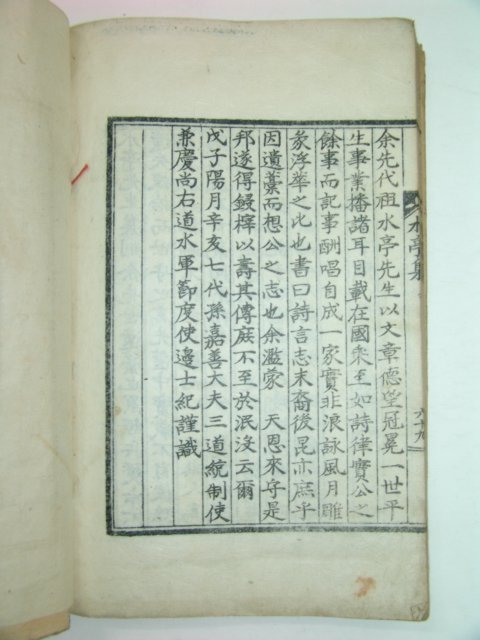 余先代祖水亭先生以文章德望冠冕一世平
生事業播諸耳目載在國乘至如詩律實公之
餘事而記事酬唱自成一家實非浪詠風月雕
篆浮華之比也書曰詩言志末裔後昆亦庶乎
因遺藁而想公之志也余濫蒙 天恩來守是
邦遂得鋟梓以壽其傳庶不至於泯沒云爾
戊子陽月辛亥七代孫嘉善大夫三道統制使
兼慶尚右道水軍節度使邊士紀謹識
水亭集
六十九